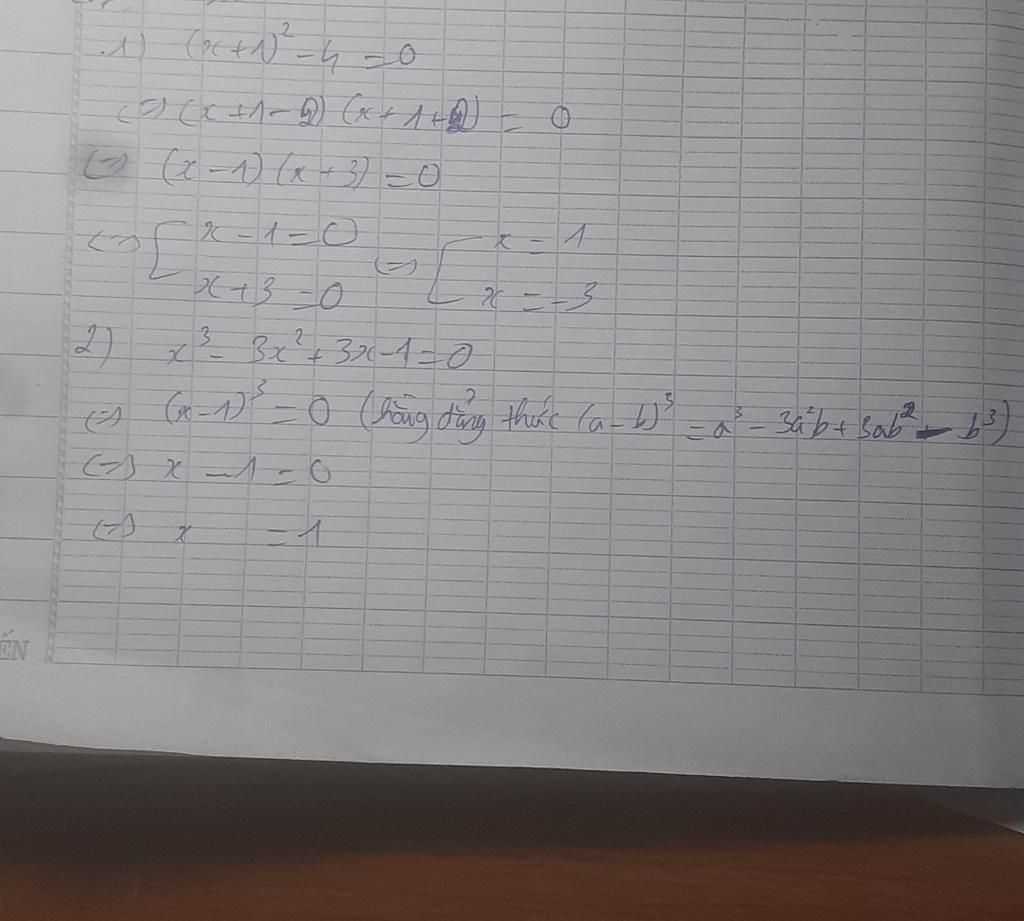 1) (x+1)² - 4 = 0
<=> (x+1-2) (x+1+2) = 0
<=> (x-1) (x+3) = 0
<=> [ x-1=0 <=> [ x = 1
x+3=0 x = -3
2) x³ - 3x² + 3x - 1 = 0
<=> (x-1)³ = 0 (hằng đẳng thức (a-b)³ = a³ - 3a²b + 3ab² - b³)
<=> x - 1 = 0
<=> x = 1
ẾN